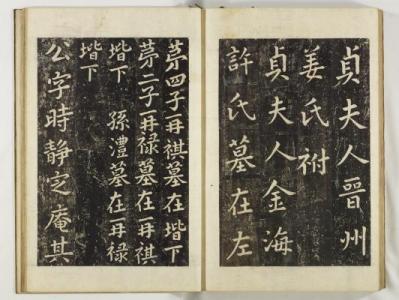 貞夫人晉州
姜氏祔
貞夫人金海
許氏墓在左
苐四子冄祺墓在堦下
苐二子冄祿墓在冄祺
堦下　孫澧墓在冄禄
堦下
公字時靜㝎庵其